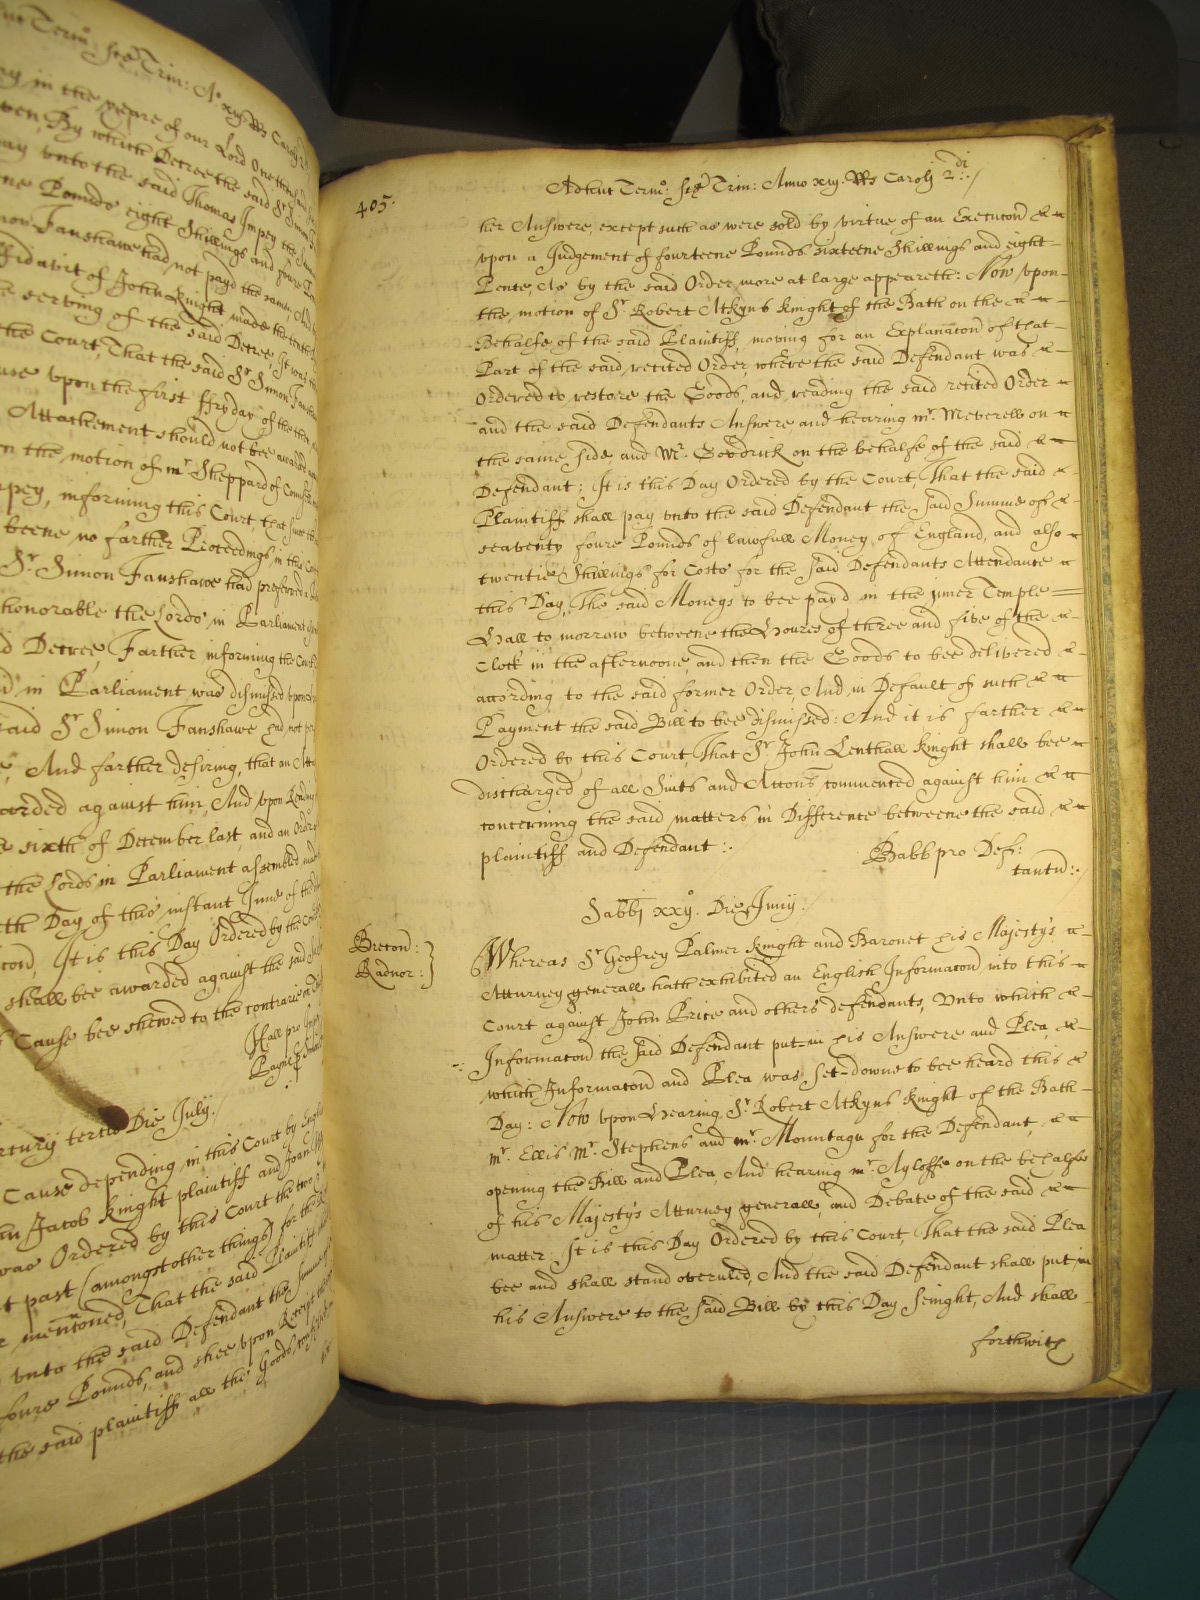 Term: Trin: Aº xiij
in the yeare of our Lord One thous
By which Decree the said Sr
unto the said Thomas Impey the
Pounds eight Shillings and foure
Fanshawe had not payd the same, And
Affidavit of John Knight made the
serving of the said Decree, It was
the Court, That the said Sr Simon Fansh
upon the first ffryday of the
Attachement should not bee awarded
the motion of mr. Sheppard of
informing this Court, that
beene no farther Proceedings in this
Sr. Simon Fanshawe had preferred
honorable the Lords in Parliament
Decree, Farther informing the Court
in Parliament was dismissed
said Sr Simon Fanshawe had not
And farther desiring, that an
awarded against him, And upon
sixth of December last, and an Order
the Lords in Parliament assembled
Day of this instant June
It is this Day Ordered by the Court
shall bee awarded against the said
Cause bee shewed to the contrarie
Hall pro
tertio Die July.
Cause depending in this Court by
Jacob Knight plaintiff and Joan
was Ordered by this Court the two
past (amongst other things) for the
mentoned, That the said Plaintiff
unto the said Defendant the Summe
foure Pounds, and shee upon Receipt
the said plaintiff all the Goods
405.
Adhuc Term: Ste Trin: Anno xiij. Rs Caroli 2di:
her Answere, except such as were sold by virtue of an Executcon &c
upon a Judgement of fourteene Pounds sixteene Shillings and eight-
Pence, As by the said Order more at large appeareth: Now upon-
the motion of Sr. Robert Atkyns Knight of the Bath on the &c
Behalfe of the said Plaintiff, moving for an Explanatcon of that-
Part of the said recited Order where the said Defendant was &c
Ordered to restore the Goods, and reading the said recited Order
and the said Defendants Answere, and hearing mr. Meverell on
the same side and Mr. Goodrick on the behalfe of the said &c
Defendant: It is this Day Ordered by the Court, That the said
Plaintiff shall pay unto the said Defendant the said Summe of
seaventy foure Pounds of lawfull Money of England, and also
twentie Shillings for Costs for the said Defendants Attendance
this Day, The said Moneys to bee payd in the Inner Temple
Hall to morrow betweene the Houres of three and five of the
Clock in the afternoone, and then the Goods to bee delivered
according to the said former Order, And in Default of such &c
Payment the said Bill to bee dismissed: And it is farther &c
Ordered by this Court, That Sr. John Lenthall Knight shall bee
discharged of all Suits and Actons commenced against him &c
concerning the said matters in Difference betweene the said &c
plaintiff and Defendant:.
Babb pro Def:
tantu:
Sabbi xxij. Die Junij.
Brecon:
Radnor:
Whereas Sr. Geofrey Palmer Knight and Baronet his Majesty's
Atturney generall hath exhibited an English Informacon into this
Court against John Price and others defendants, Unto which &c
Informacon the said Defendant put-in his Answere and Plea,
which Informacon and Plea was set-downe to bee heard this
Day: Now upon Hearing Sr. Robert Atkyns Knight of the Bath
mr. Ellis Mr. Stephens and mr. Mountagu for the Defendant,
opening the Bill and Plea, And hearing mr. Ayloffe on the behalfe
of his Majesty's Atturney generall, and Debate of the said &c
matter. It is this Day Ordered by this Court, That the said Plea
bee and shall stand overruled, And the said Defendant shall put in
his Answere to the said Bill by this Day Senight, And shall
forthwith